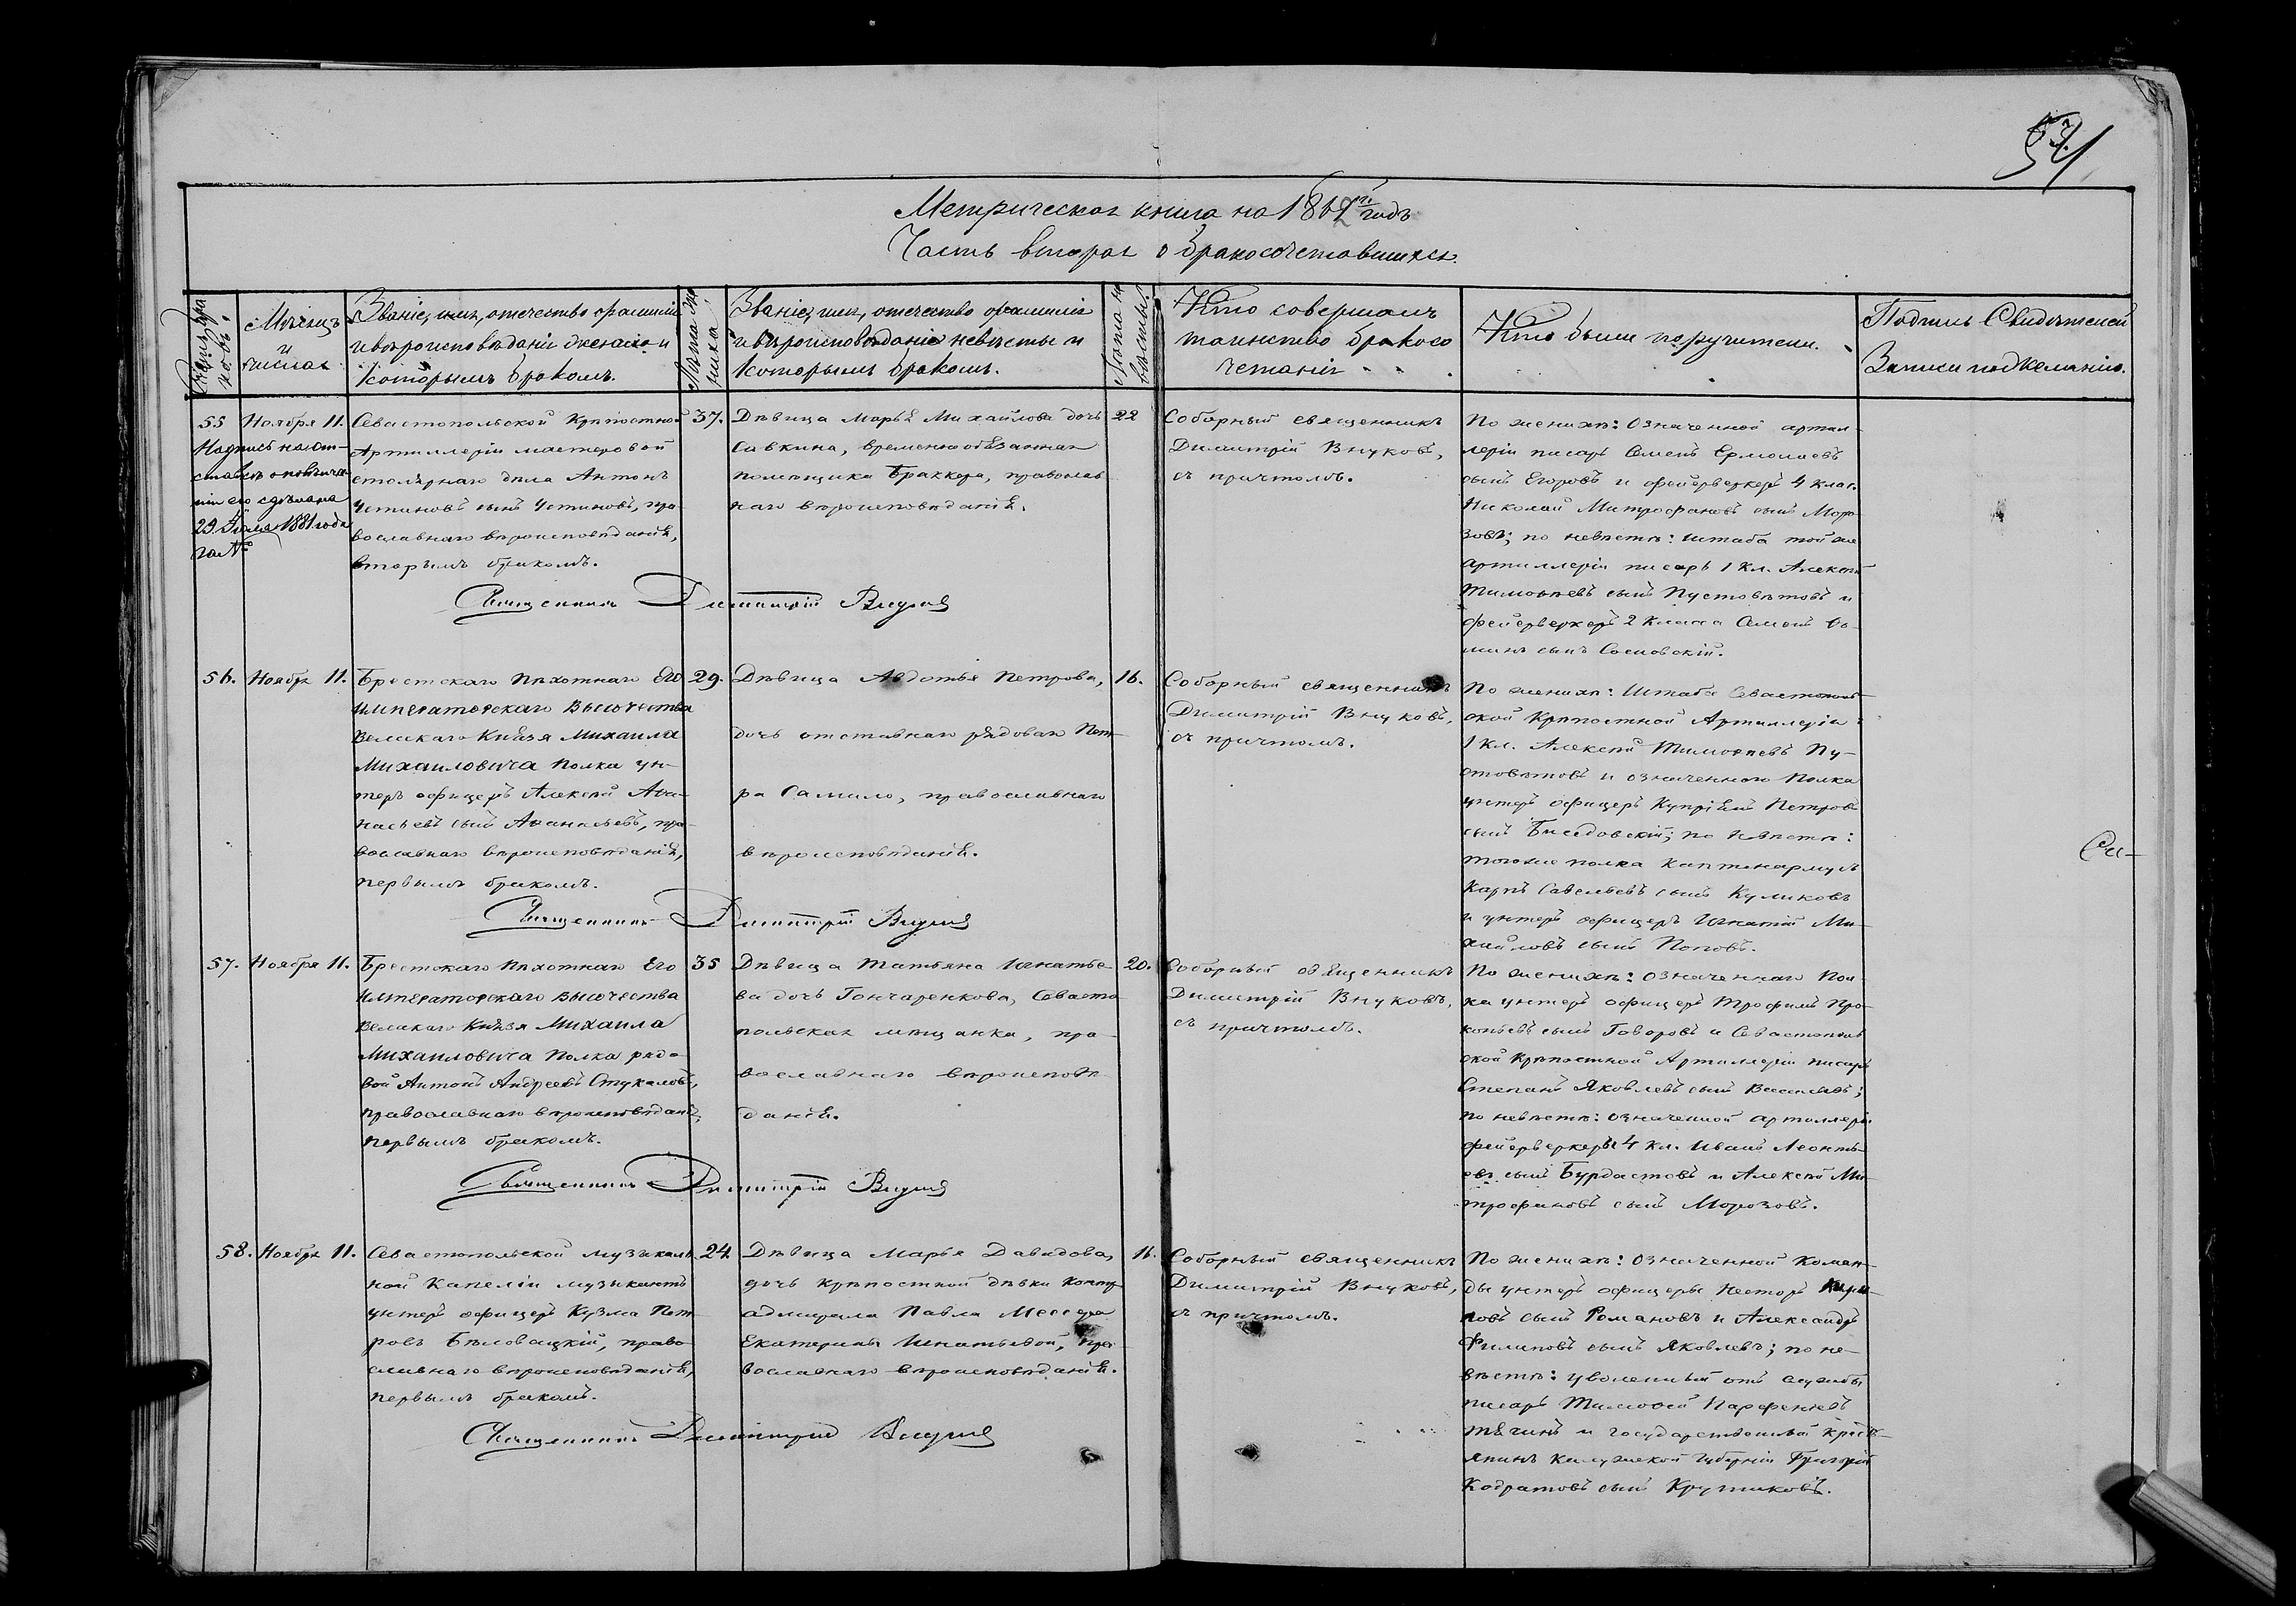 54
Метрическая книга на 1862й годъ
Часть вторая о бракосочетавшихся.
Счетъ бра
ковъ.
Мѣсяцъ
и
число
Званіе, имя, отечество фамилія
и вѣроисповѣданіе жениха и
которымъ бракомъ.
Лѣта же
ниха
Званіе, имя, отечество фамилія
и вѣроисповѣданіе невѣсты и
которымъ бракомъ.
Лѣта не
вѣсты.
Кто совершалъ
таинство бракосо
четанія
Кто были поручители.
Подпись Свидѣтелей
Записи по желанію.
55
Ноября 11.
Надпись на от-
ставкѣ о повѣнча
ніи его сдѣлана
29 Іюля 1881 года
за №
Севастопольской Крѣпостной
Артиллеріи мастеровой
столярнаго дѣла Антонъ
Устиновъ сынъ Устиновъ, пра
вославнаго вѣроисповѣданія,
вторымъ бракомъ.
37.
Дѣвица Марья Михайлова дочь
Савкина, временно обязанная
помѣщика Браккера, православ
наго вѣроисповѣданія.
22
Соборный священникъ
Димитрій Внуковъ,
съ причтомъ.
По женихѣ: Означенной артил-
леріи писарь Семенъ Ермолаевъ
сынъ Егоровъ и фейерверкеръ 4 клас.
Николай Митрофановъ сынъ Моро-
зовъ; по невѣстѣ: штаба той же
артиллеріи писарь 1 кл. Алексѣй
Тимофѣевъ сынъ Пустовѣтовъ и
фейерверкеръ 2 класса Семенъ Фо-
минъ сынъ Сосновскій.
Священникъ Димитрій Внуковъ
56.
Ноября 11.
Брестскаго Пѣхотнаго Его
Императорскаго Высочества
Великаго Князя Михаила
Михаиловича полка ун-
теръ офицеръ Алексѣй Афа-
насьевъ сынъ Афанасьевъ, пра-
вославнаго вѣроисповѣданія,
первымъ бракомъ.
29.
Дѣвица Авдотья Петрова,
дочь отставнаго рядоваго Пет-
ра Самило, православнаго
вѣроисповѣданія.
16.
Соборный священникъ
Димитрій Внуковъ,
съ причтомъ.
По женихѣ: Штаба Севастополь-
ской Крѣпостной Артиллеріи
1 кл. Алексѣй Тимофѣевъ Пу-
стовѣтовъ и означеннаго полка
унтеръ офицеръ Купріянъ Петровъ
сынъ Биседовскій; по невѣстѣ:
того же полка каптенармусъ
Карпъ Савельевъ сынъ Куликовъ
и унтеръ офицеръ Игнатій Ми-
хайловъ сынъ Поповъ.
Священникъ Димитрій Внуковъ
Си-
57.
Ноября 11.
Брестскаго Пѣхотнаго Его
Императорскаго Высочества
Великаго Князя Михаила
Михаиловича полка рядо-
вой Антонъ Андреевъ Стукаловъ,
православнаго вѣроисповѣданія,
первымъ бракомъ.
35
Дѣвица Татьяна Игнатье-
ва дочь Гончаренкова, Севасто
польская мѣщанка, пра-
вославнаго вѣроисповѣ
данія.
20.
Соборный священникъ
Димитрій Внуковъ,
съ причтомъ.
По женихѣ: Означеннаго Пол-
ка унтеръ офицеръ Трофимъ Про-
копьевъ сынъ Говоровъ и Севастополь
ской Крѣпостной Артиллеріи писарь
Степанъ Яковлевъ сынъ Васильевъ;
по невѣстѣ: означенной артиллеріи
фейерверкеры 4 кл. Иванъ Леонть-
евъ сынъ Бурдастовъ и Алексѣй Ми-
трофановъ сынъ Морозовъ.
Священникъ Димитрій Внуковъ
58.
Ноября 11.
Севастопольской музыкаль
ной капеліи музыкантъ
унтеръ офицеръ Кузма Пет-
ровъ Бѣловацкій, право-
славнаго вѣроисповѣданія,
первымъ бракомъ.
24.
Дѣвица Марья Давидова,
дочь крѣпостной дѣвки контр-
адмирала Павла Мессера
Екатерины Игнатьевой, пра-
вославнаго вѣроисповѣданія.
16.
Соборный священникъ
Димитрій Внуковъ,
съ причтомъ.
По женихѣ: Означенной Коман-
ды унтеръ офицеры Несторъ
новъ сынъ Романовъ и Александръ
Филиповъ сынъ Яковлевъ; по не-
вѣстѣ: уволенный отъ службы
писарь Тимофей Парфеньевъ
Тягинъ и государственный крестъ-
янинъ Калужской Губерніи Григорій
Кодратовъ сынъ Крутиковъ.
Священникъ Димитрій Внуковъ